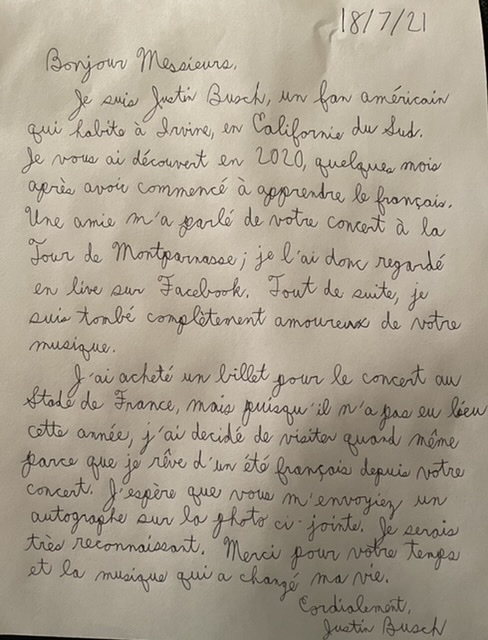 18/7/21
Bonjour Messieurs,
Je suis Justin Busch, un fan américain
qui habite à Irvine, en Californie du Sud.
Je vous ai découvert en 2020, quelques mois
après avoir commencé à apprendre le français.
Une amie m'a parlé de votre concert à la
Tour de Montparnasse; je l'ai donc regardé
en live sur Facebook. Tout de suite, je
suis tombé complètement amoureux de votre
musique.
J'ai acheté un billet pour le concert au
Stade de France, mais puisqu'il n'a pas eu lieu
cette année, j'ai decidé de visiter quand même
parce que je rêve d'un été français depuis votre
concert. J'espère que vous m'envoyiez un
autographe sur la photo ci-jointe. Je serais
très reconnaissant. Merci pour votre temps
et la musique qui a changé ma vie.
Cordialement,
Justin Busch